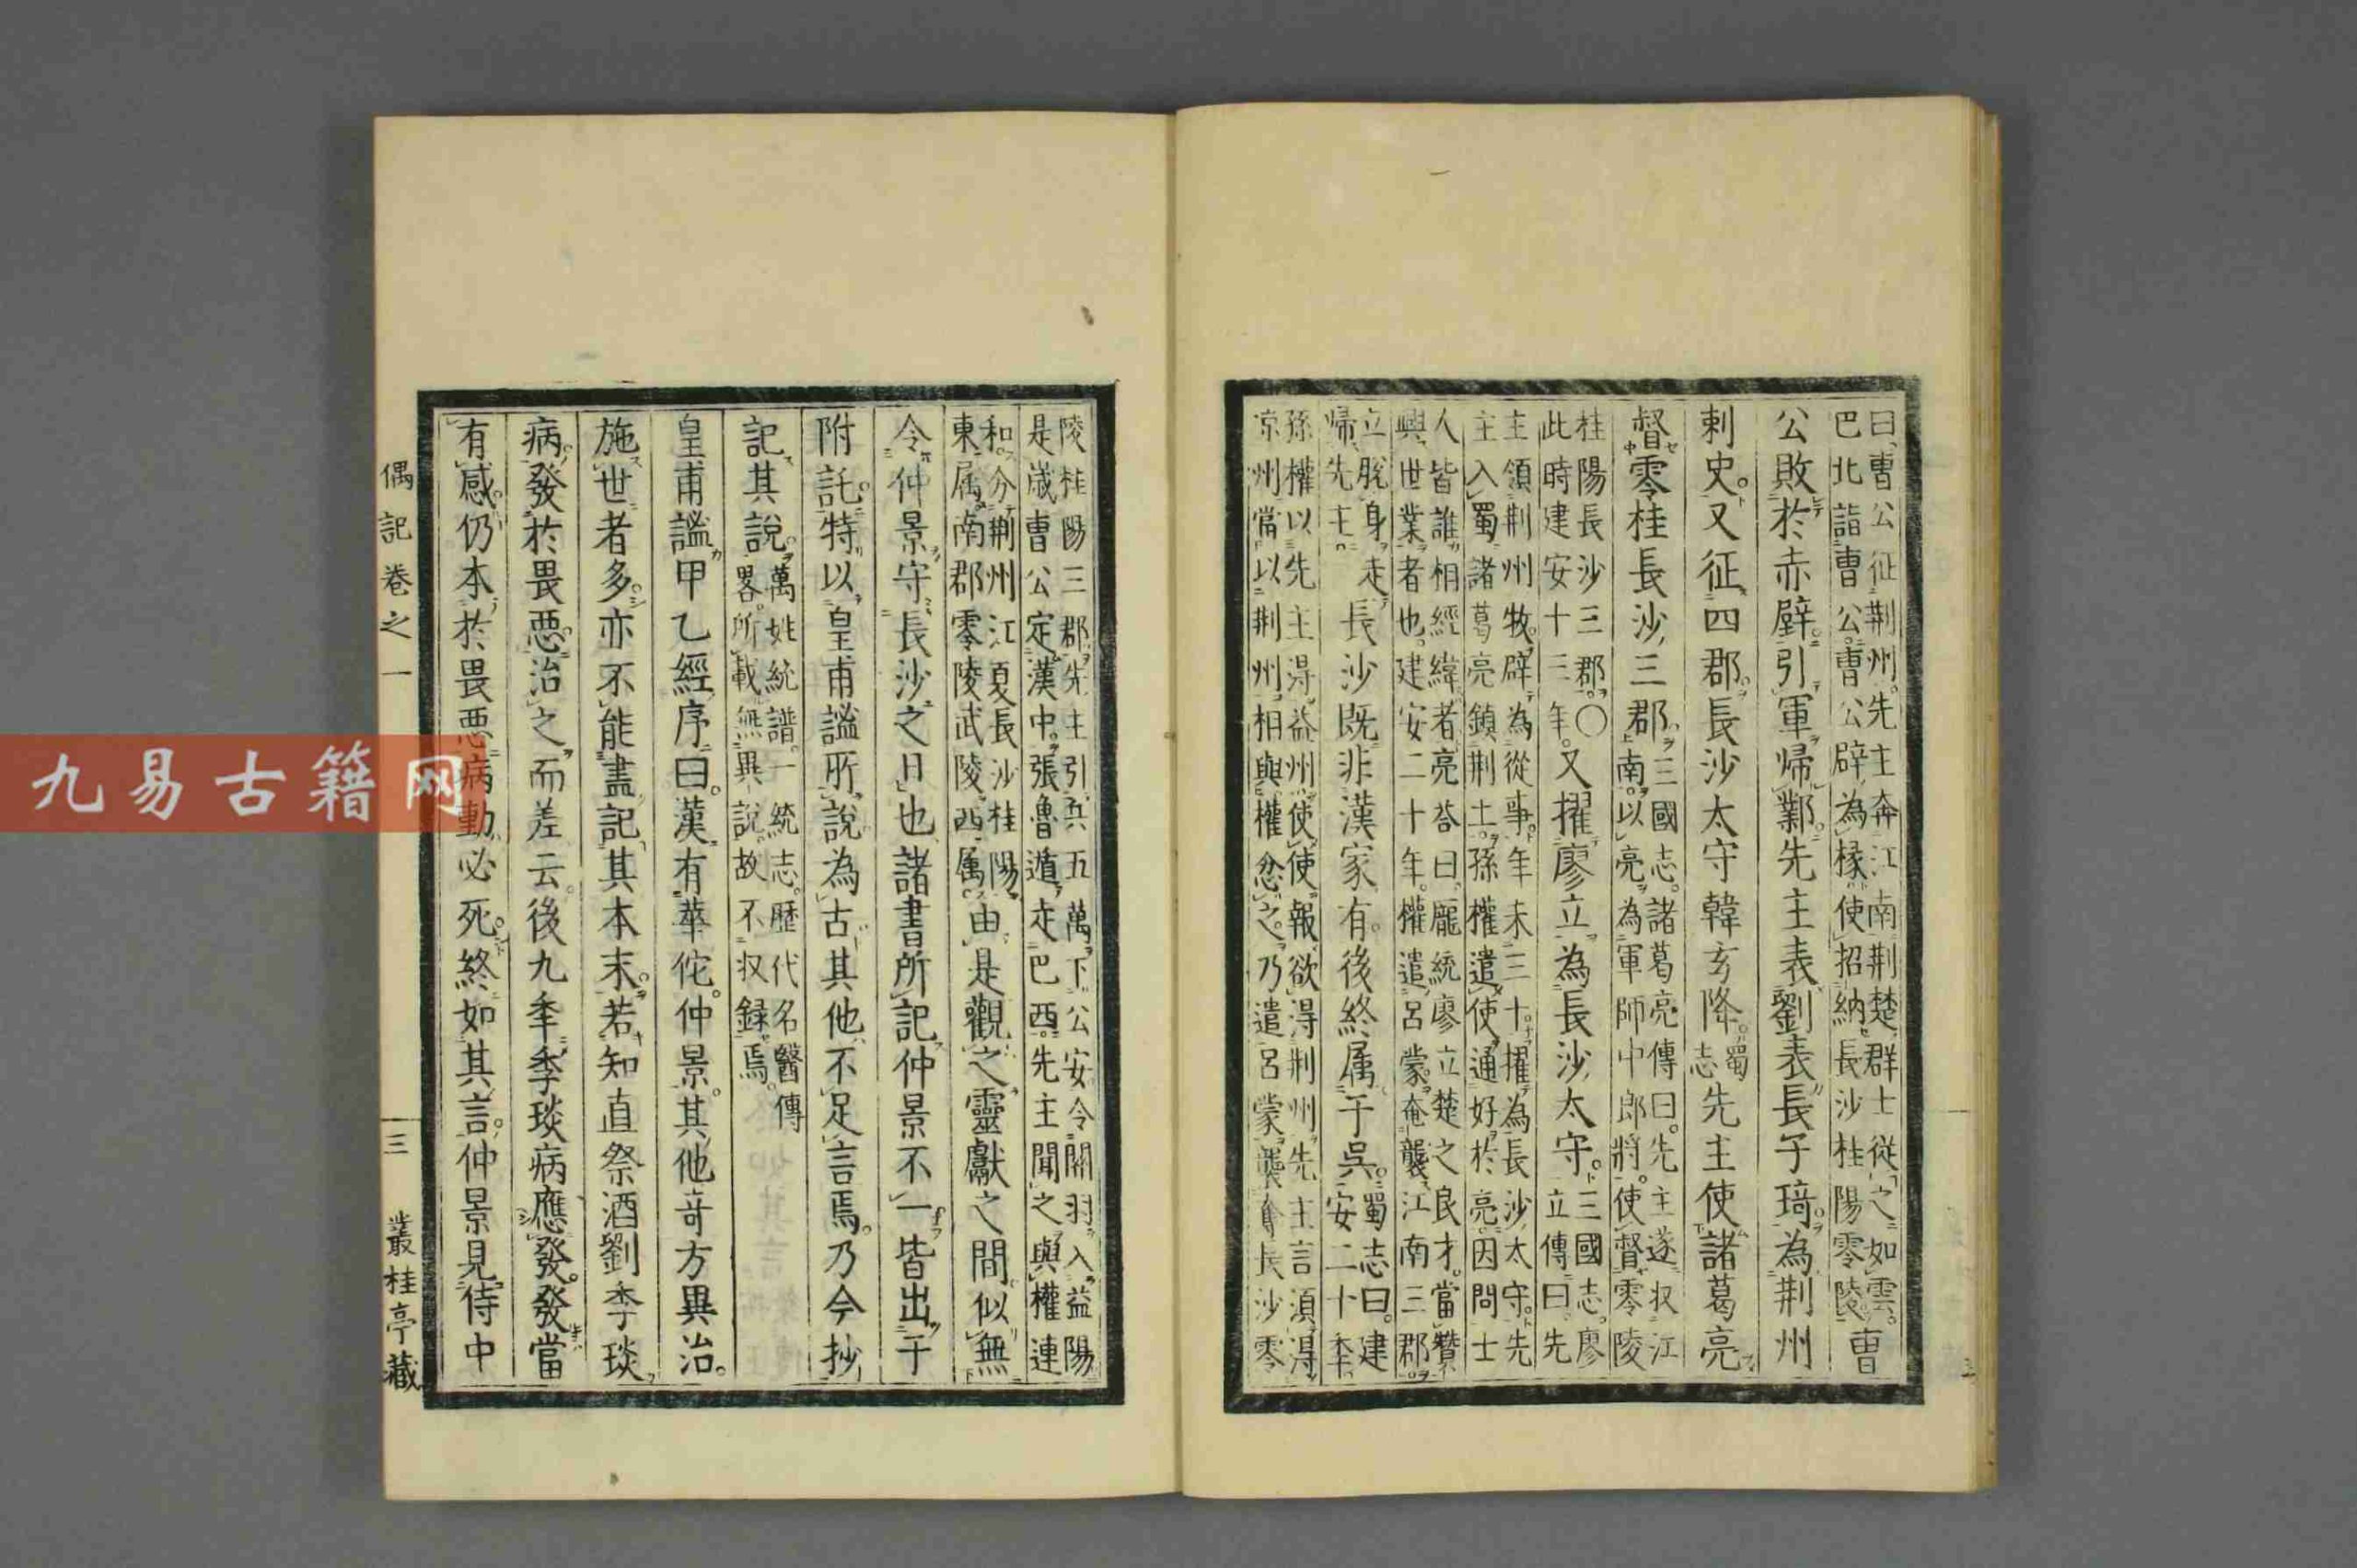 曰曹公征荆州先主奔江南荆楚群士從之如雲
巴北詣曹公曹公辟為掾使招納長沙桂陽零陵曹
公敗於赤壁引軍歸鄴先主表劉表長子琦為荆州
刺史又征四郡長沙太守韓玄降蜀志先主使諸葛亮
督零桂長沙三郡三國志諸葛亮傳曰先主遂收江
南以亮為軍師中郎將使督零陵
桂陽長沙三郡〇
此時建安十三年又擢廖立為長沙太守三國志廖
立傳曰先
主領荆州牧辟為從事年未三十擢為長沙太守先
主入蜀諸葛亮鎮荆土孫權遣使通好於亮因問士
人皆誰相經緯者亮荅曰龐統廖立楚之良才當贊
興世業者也建安二十年權遣呂蒙奄襲江南三郡
立脫身走
歸先主長沙既非漢家有後終属于吳蜀志曰建
安二十季
孫權以先主得益州使使報欲得荆州先主言須得
凉州當以荆州相與權忿之乃遣呂蒙襲奪長沙零
陵桂陽三郡先主引兵五萬下公安令關羽入益陽
是歲曹公定漢中張魯遁走巴西先主聞之與權連
和分荆州江夏長沙桂陽
東属南郡零陵武陵西属由是觀之靈獻之間似無
令仲景守長沙之日也諸書所記仲景不一皆出于
附託特以皇甫謐所說為古其他不足言焉乃今抄
記其說萬姓統譜一統志歷代名醫傳
畧所載無異說故不収録焉
皇甫謐甲乙經序曰漢有華佗仲景其他竒方異治
施世者多亦不能盡記其本末若知直祭酒劉季琰
病發於畏惡治之而差云後九季季琰病應發發當
有感仍本於畏惡病動必死終如其言仲景見侍中
偶記卷之一
三
叢桂亭藏
九易古籍网